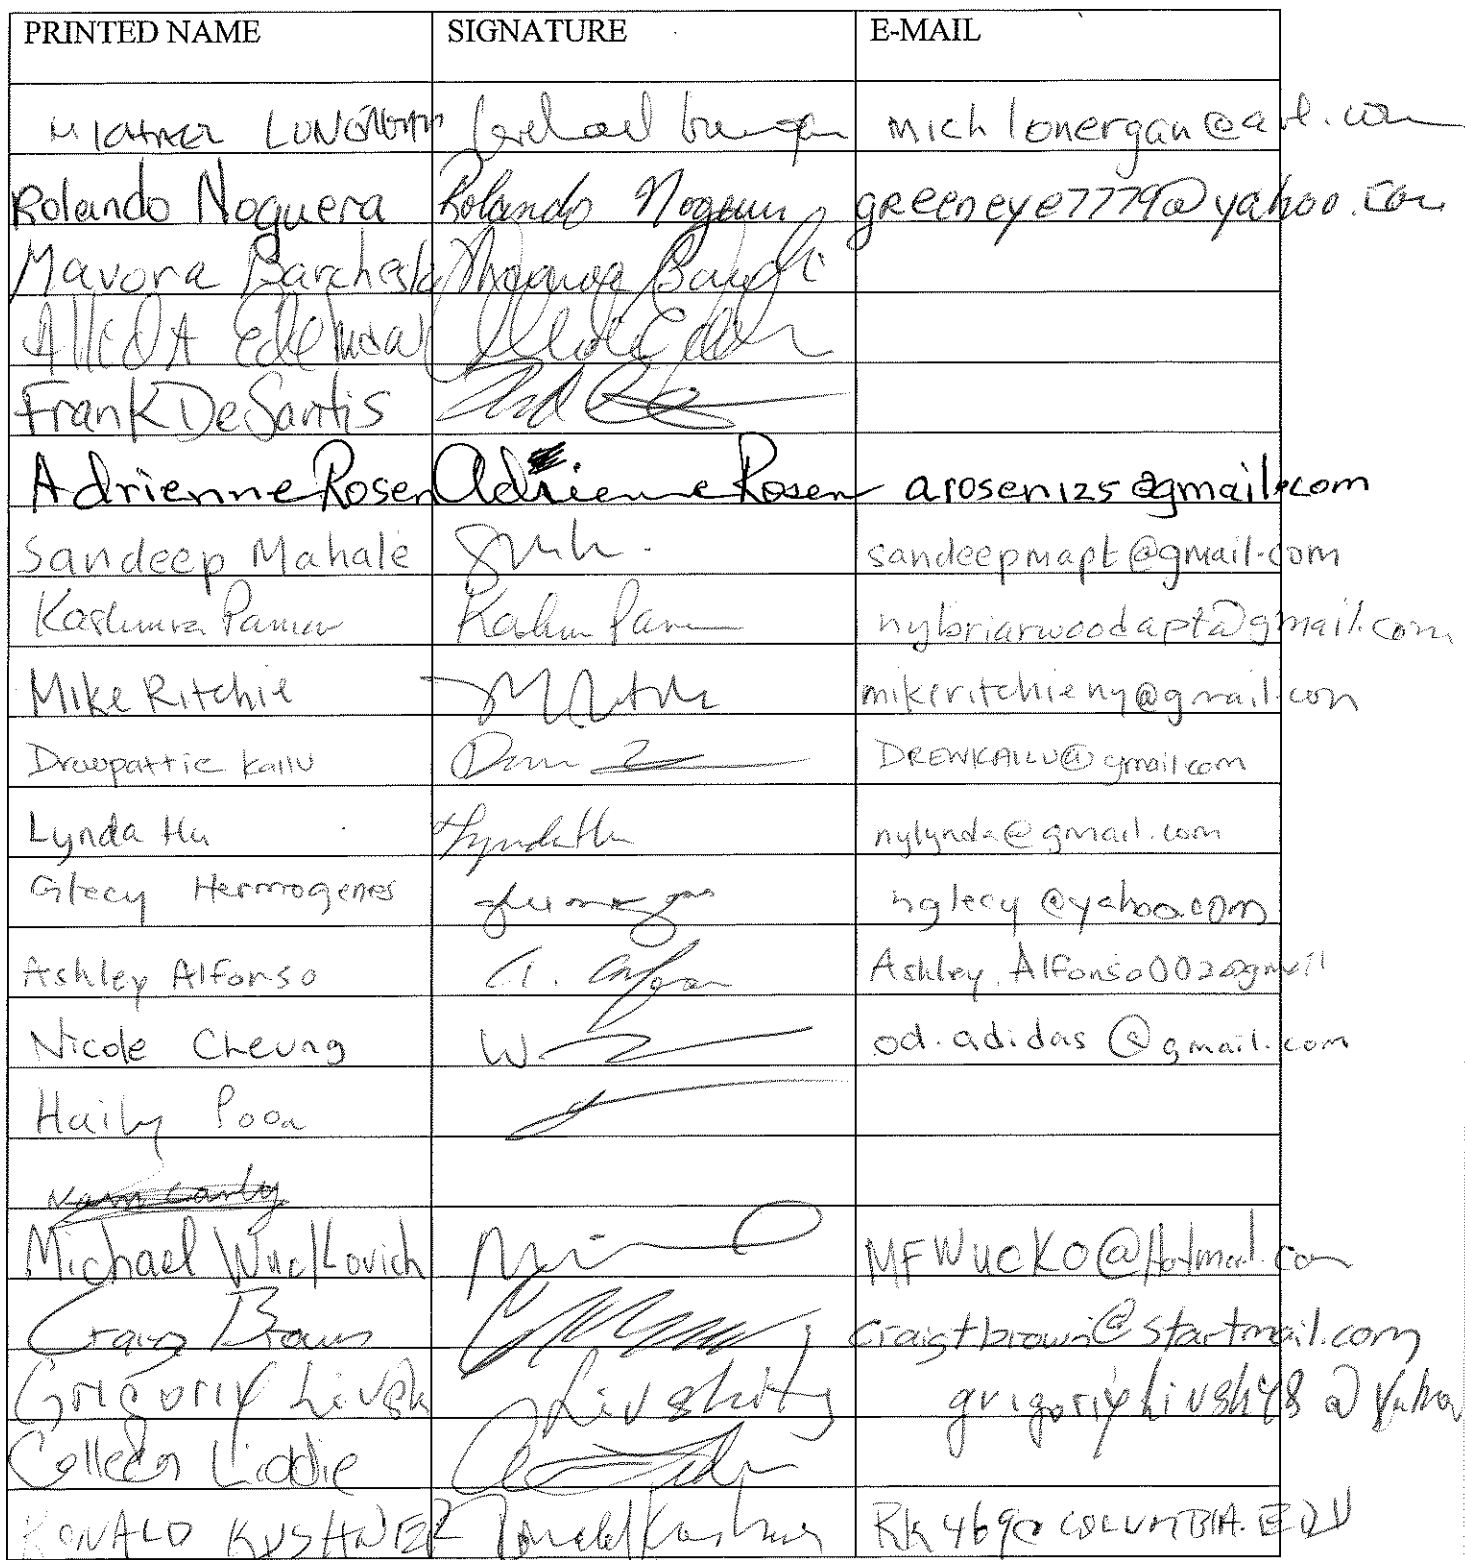 PRINTED NAME SIGNATURE E-MAIL
michlonergan@aol.com
Rolando Noguera Rolando Noguera greeneye7779@yahoo.com
Mavora
Frank DeSantis
Adrienne Rosen Adrienne Rosen arosen125@gmail.com
Sandeep Mahale sandeepmapt@gmail.com
nybriarwoodapt@gmail.com
Mike Ritchie mikeritchieny@gmail.com
Drowpattie Kallu DREWKALLU@gmail.com
Lynda Hu Lynda Hu nylynda@gmail.com
Glecy Hermogenes nglecy@yahoo.com
Ashley Alfonso A. Alfonso Ashley.Alfonso002@gmail
Nicole Cheung od.adidas@gmail.com
Haily
Michael Wuckovich MFWUCKO@Hotmail.com
Craig Brown craigtbrown@startmail.com
Grigoriy Livsh Livshits grigoriylivsh48@yahoo
Colleen Liddie
RONALD KUSHNER Ronald Kushner RK469@COLUMBIA.EDU